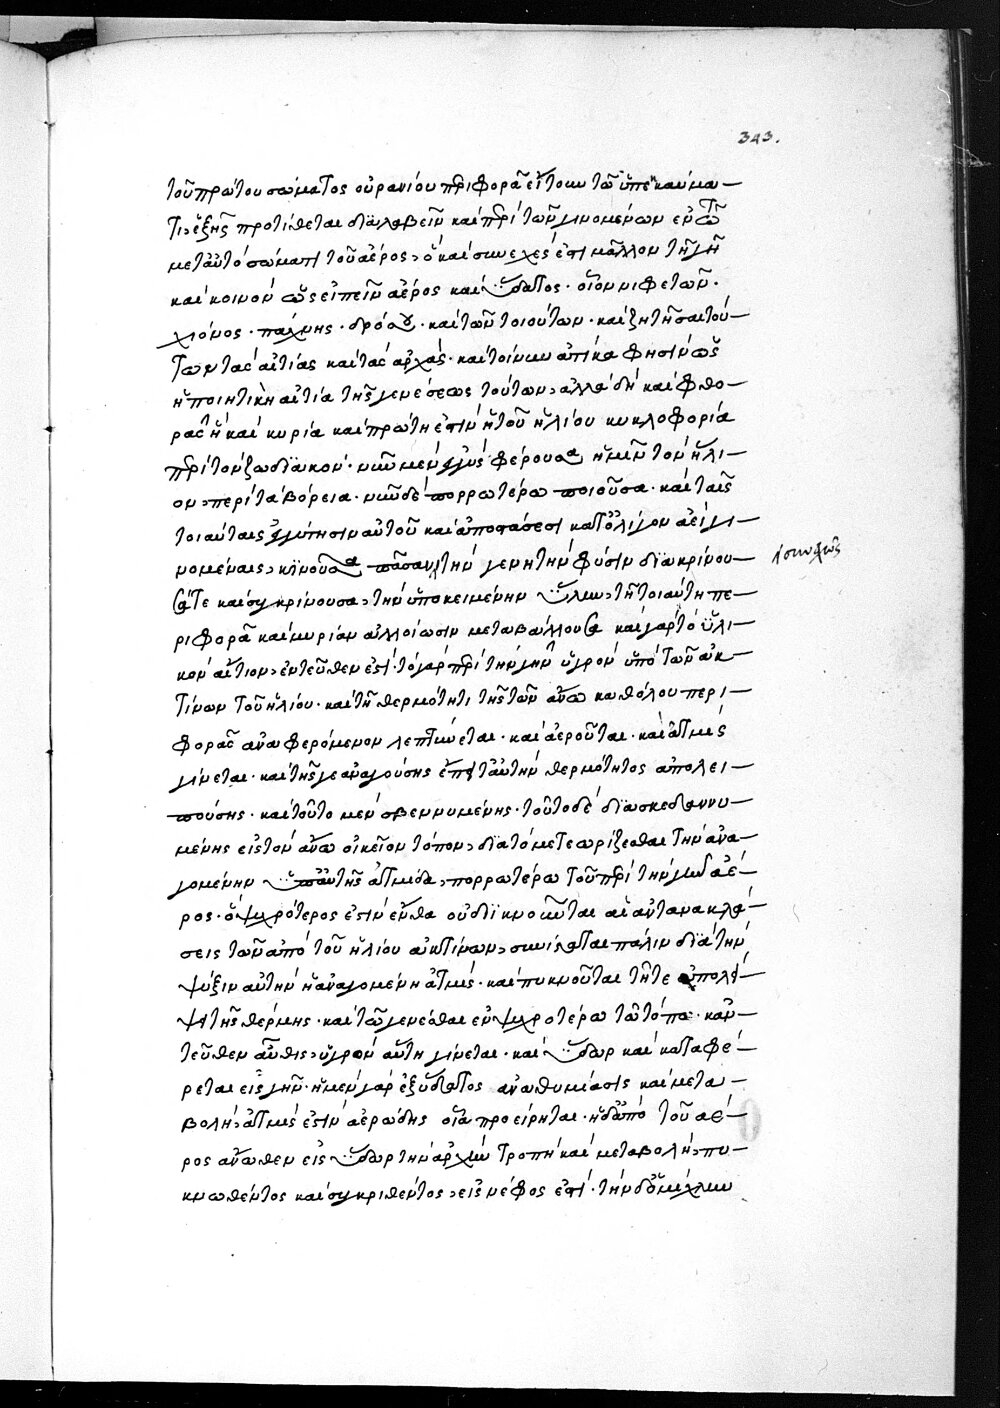 343.
τοῦ πρώτου σώματος οὐρανίου περιφορᾶ εἴτουν τῶ ὑπεκκαύμα-
τι, ἑξῆς προτίθεται διαλαβεῖν καὶ περὶ τῶν γινομένων ἐν τῶ
μετ' αὐτὸ σώματι τοῦ ἀέρος, ὃ καὶ συνεχές ἐστι μᾶλλον τῆ γῆ
καὶ κοινὸν ὡς εἰπεῖν ἀέρος καὶ ὕδατος· οἷον νιφετῶν·
χιόνος· πάχνης· δρόσου· καὶ τῶν τοιούτων· καὶ ζητῆσαι τού-
των τὰς αἰτίας καὶ τὰς ἀρχάς· καὶ τοίνυν αὐτίκα φησὶν ὡς
ἡ ποιητικὴ αἰτία τῆς γενέσεως τούτων, ἀλλὰ δὴ καὶ φθο-
ρᾶς ἡ καὶ κυρία καὶ πρώτη ἐστὶν ἡ τοῦ ἡλίου κυκλοφορία
περὶ τὸν ζωδιακόν· νῦν μὲν ἐγγὺς φέρουσα ἡμῖν τὸν ἥλι-
ον, περὶ τὰ βόρεια· νῦν δὲ πορρωτέρω ποιοῦσα· καὶ ταῖς
τοιαύταις ἐγγύτησιν αὐτοῦ καὶ ἀποστάσεσι κατ' ὀλίγον ἀεὶ γι-
νομέναις, κινοῦσα πᾶσαν τὴν γενητὴν φύσιν διακρίνου-
σά τε καὶ συγκρίνουσα, τὴν ὑποκειμένην ὕλην, τῆ τοιαύτη πε-
ριφορᾶ καὶ μυρίαν ἀλλοίωσιν μεταβάλλουσα καὶ γὰρ τὸ ὑλι-
κὸν αἴτιον, ἐντεῦθέν ἐστι· τὸ γὰρ περὶ τὴν γῆν ὑγρὸν ὑπὸ τῶν ἀκ-
τίνων τοῦ ἡλίου· καὶ τῆ θερμότητι τῆς τῶν ἄνω καθόλου περι-
φορᾶς ἀναφερόμενον λεπτύνεται· καὶ ἀεροῦται· καὶ ἀτμὶς
γίνεται· καὶ τῆς γε ἀναγούσης ἐπὶ ταύτην θερμότητος ἀπολει-
πούσης· καὶ τοῦτο μὲν σβεννυμένης· τοῦτο δὲ διασκεδαννυ-
μένης εἰς τὸν ἄνω οἰκεῖον τόπον, διὰ τὸ μετεωρίζεσθαι τὴν ἀνα-
γομένην ὑπ' αὐτῆς ἀτμίδα, πορρωτέρω τοῦ περὶ τὴν γῆν ἀέ-
ρος· ὃ ψυχρότερος ἐστὶν ἔνθα οὐ διϊκνοῦνται αἱ ἀντανακλά-
σεις τῶν ἀπὸ τοῦ ἡλίου ἀκτίνων, συνίσταται πάλιν διὰ τὴν
ψύξιν αὐτὴν ἡ ἀναγομένη ἀτμίς· καὶ πυκνοῦται τῆ τε ἀπολεί-
ψει τῆς θέρμης· καὶ τῶ γενέσθαι ἐν ψυχροτέρω τῶ τόπω· κἀν-
τεῦθεν αὖθις, ὑγρὸν αὕτη γίνεται· καὶ ὕδωρ καὶ καταφέ-
ρεται εἰς γῆν· ἡ μὲν γὰρ ἐξ ὕδατος ἀναθυμίασις καὶ μετα-
βολή, ἀτμίς ἐστιν ἀερώδης οἷα προείρηται· ἡ δ' ἀπὸ τοῦ ἀέ-
ρος ἄνωθεν εἰς ὕδωρ τὴν ἀρχὴν τροπὴ καὶ μεταβολή, πυ-
κνωθέντος καὶ συγκριθέντος, εἰς νέφος ἐστί· τὴν δ' ὀμίχλην